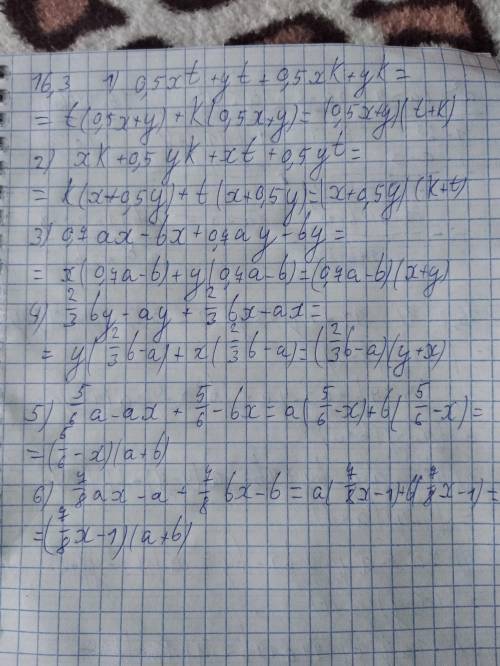 16,3 1) 0,5xt+yt+0,5xk+yk=
= t(0,5x+y)+k(0,5x+y)=(0,5x+y)(t+k)
2) xk+0,5yk+xt+0,5yt=
= k(x+0,5y)+t(x+0,5y)=(x+0,5y)(k+t)
3) 0,7ax-bx+0,7ay-by=
= x(0,7a-b)+y(0,7a-b)=(0,7a-b)(x+y)
4) 2/3by-ay+2/3bx-ax=
= y(2/3b-a)+x(2/3b-a)=(2/3b-a)(y+x)
5) 5/6a-ax+5/6-bx=a(5/6-x)+b(5/6-x)=
=(5/6-x)(a+b)
6) 7/8ax-a+7/8bx-b=a(7/8x-1)+b(7/8x-1)=
=(7/8x-1)(a+b)